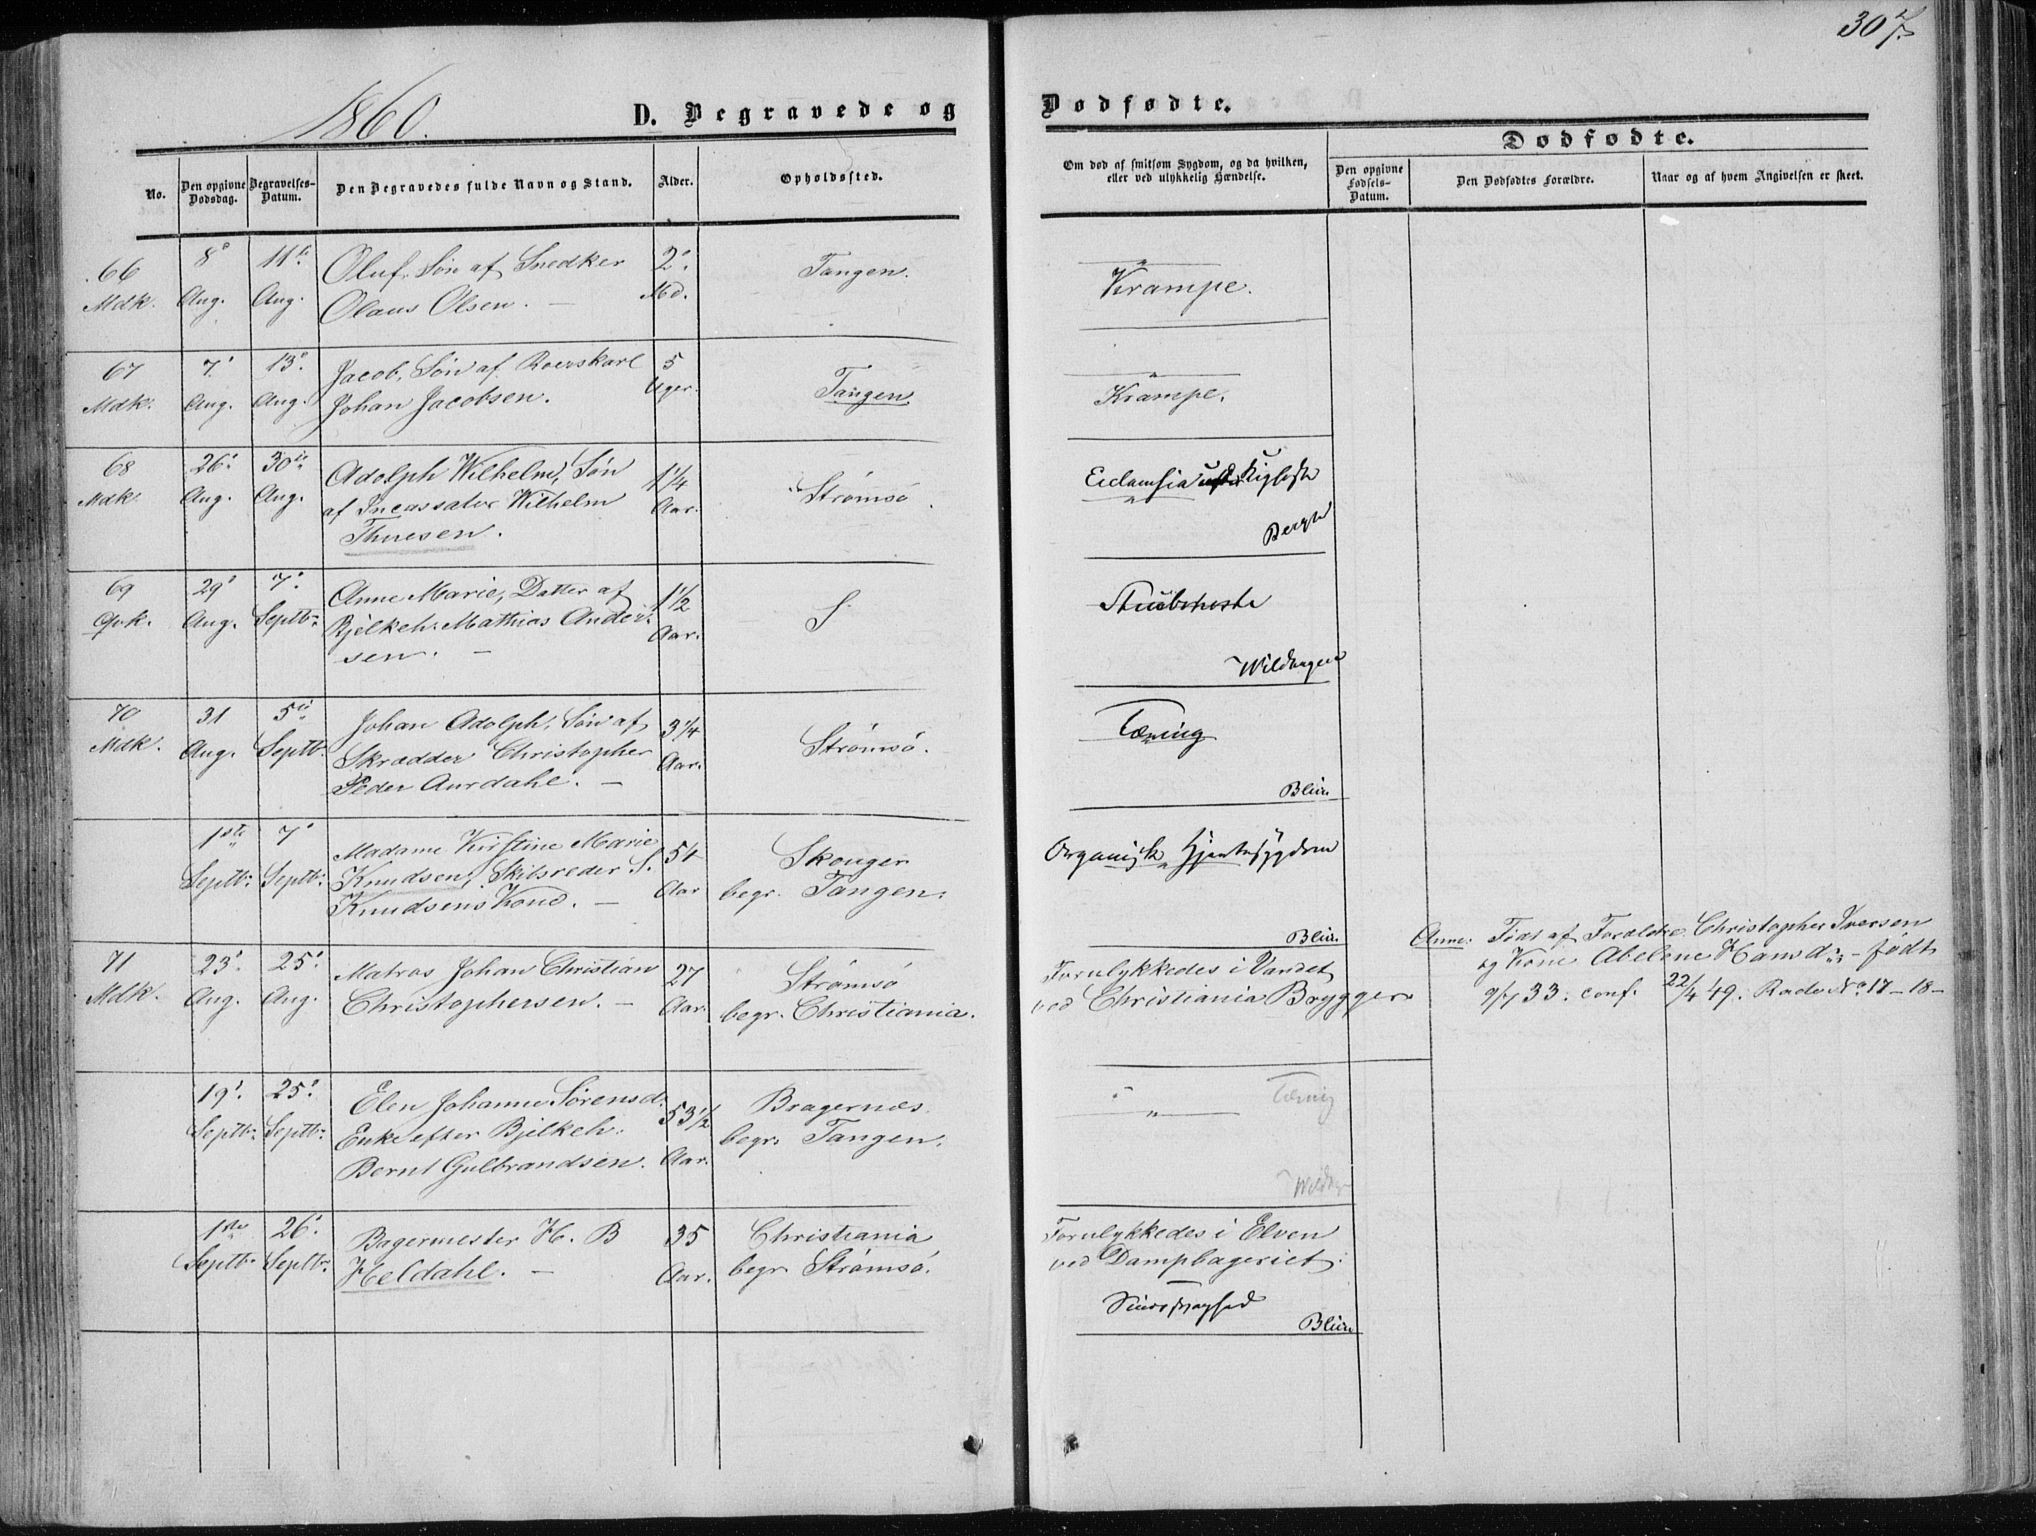 307.
1860.
D. Begravede og Dødfødte.
Dødfødte.
No.
Den opgivne Dødsdag.
Begravelses-Datum.
Den Begravedes fulde Navn og Stand.
Alder.
Opholdssted.
Om død af smitsom Sygdom, og da hvilken, eller ved ulykkelig Hændelse.
Den opgivne Fødsels-Datum.
Den Dødfødtes Forældre.
Naar og af hvem Angivelsen er skeet.
66 8de 11te Oluf, Søn af Snedker 2. Tangen. "
Mdk. Aug. Aug. Olaus Olsen. — Md. Krampe.
67 7. 13. Jacob, Søn af Roerskarl 5 Tangen "
Mdk. Aug. Aug. Johan Jacobsen. Uger. Krampe.
68 26. 30te Adolph Wilhelm, Søn 1 1/4 Strømsø. Eclamsia
Mdk. Aug. Aug. af Incassator Wilhelm Aar.
Thuesen.
69 29 7. Anne Marie, Datter af 1 1/2 S.
Gvk. Aug. Septbr. Bjelkeh. Mathias Ander- Aar.
sen. — Wildhagen
70 31 5te Johan Adolph, Søn af 3 1/4 Strømsø. Tæring
Mdk. Aug. Septbr. Skrædder Christopher Aar.
Peder Aurdahl. — Blich
1ste 7 Madame Kirstine Marie 54 Skouger Organisk Hjertesygdom
Septbr. Septbr. Knudsen, Skibsreder S. Aar begr. Tangen.
Knudsens Kone. — Blich
71 23. 25. Matros Johan Christian 27 Strømsø Forulykkedes i Vandet
Mdk. Aug. Aug. Christophersen. — Aar. begr. Christiania. ved Christiania Brygger
Anm: Født af Forældre Christopher Iversen
og Kone Abelene Hansd. - født
9/7 33. conf. 22/4 49. Rade No. 17-18-
19. 25. Elen Johanne Sørensd. 53 1/2 Bragernæs. " Tæring
Septbr. Septbr. Enke efter Bjelkeh. Aar. begr. Tangen.
Bernt Gulbrandsen.
1ste 26. Bagermester H. B 35 Christiania Forulykkedes i Elven
Septbr. Septbr. Heldahl. — Aar. begr. Strømsø. ved Dampbageriet.
Sindssvaghed
Blich